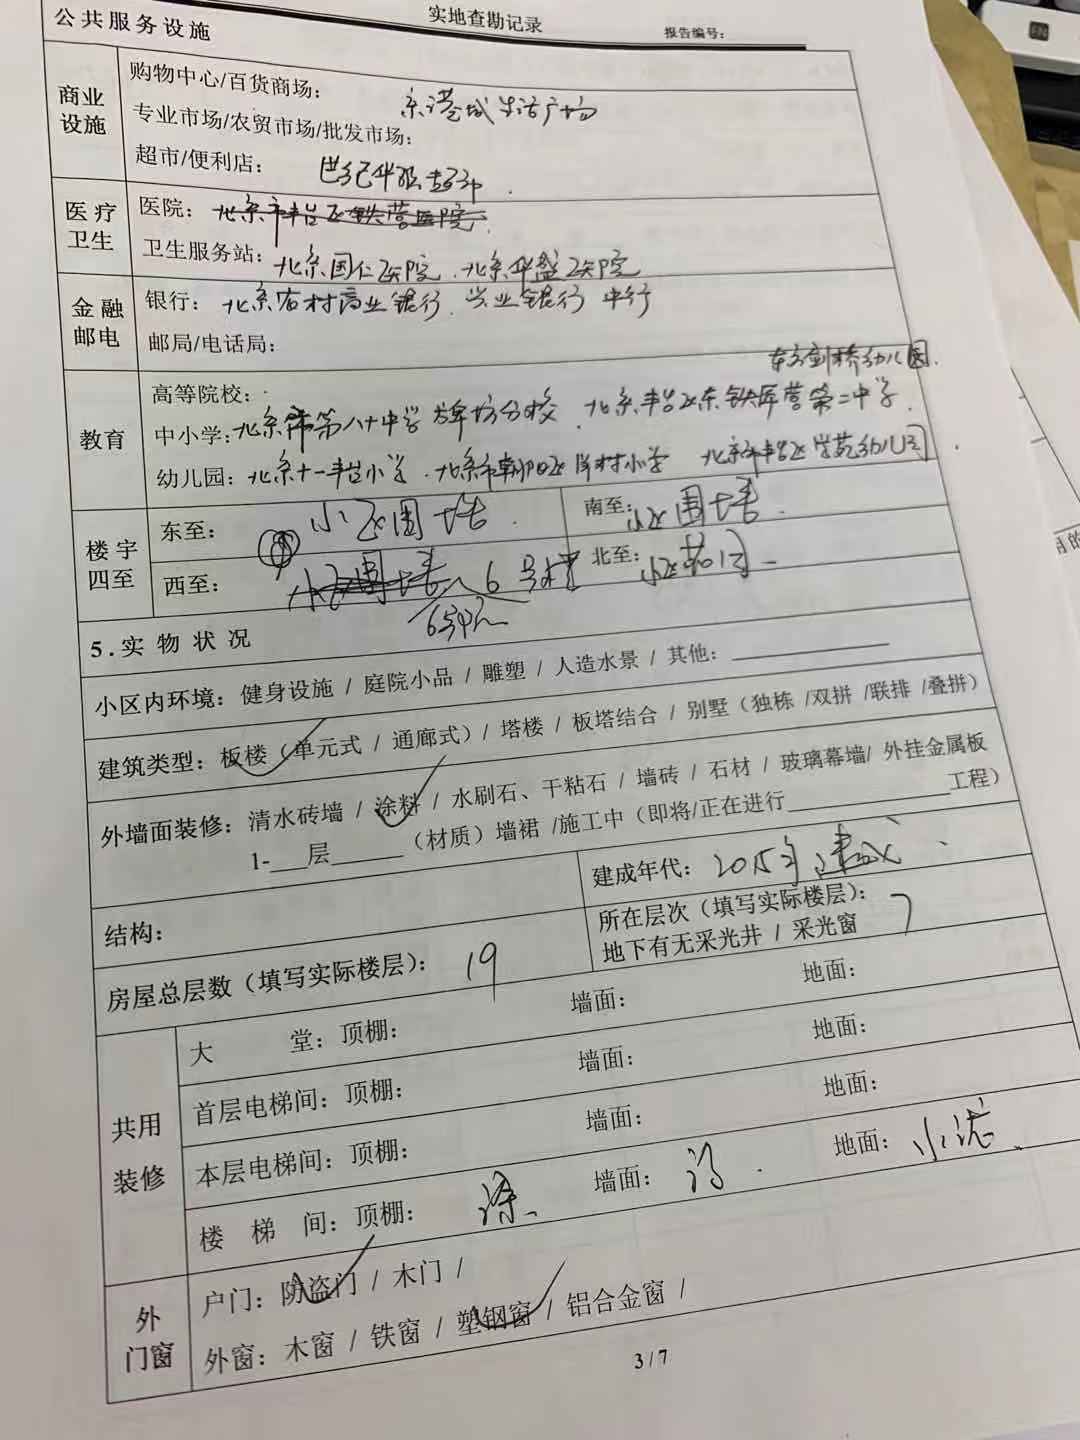 实地查勘记录
报告编号：
公共服务设施
商业设施
购物中心/百货商场：
生活广场
专业市场/农贸市场/批发市场：
超市/便利店： 世纪华联超市
医疗卫生
医院： 北京市丰台区铁营医院
卫生服务站： 北京国仁医院、北京华盛医院
金融邮电
银行： 北京农村商业银行、兴业银行 中行
邮局/电话局：
教育
东方剑桥幼儿园.
高等院校：
中小学： 北京市第八十中学 分校、北京丰台区东铁匠营第二中学.
幼儿园： 北京十一丰台小学、北京市朝阳区 村小学 北京市丰台区学苑幼儿园.
楼宇四至
东至： 小区围墙.
南至： 小区围墙.
西至： 小区围墙 6号楼
北至：
5.实 物 状 况
小区内环境：健身设施 / 庭院小品 / 雕塑 / 人造水景 / 其他：
建筑类型：板楼（单元式 / 通廊式）/ 塔楼 / 板塔结合 / 别墅（独栋 /双拼 /联排 /叠拼）
外墙面装修：清水砖墙 / 涂料 / 水刷石、干粘石 / 墙砖 / 石材 / 玻璃幕墙/ 外挂金属板
1-___层______（材质）墙裙 /施工中（即将/正在进行______________工程）
结构：
建成年代： 2015年建成
房屋总层数（填写实际楼层）： 19
所在层次（填写实际楼层）： 7
地下有无采光井 / 采光窗
共用装修
大 堂：顶棚： 墙面： 地面：
首层电梯间：顶棚： 墙面： 地面：
本层电梯间：顶棚： 墙面： 地面：
楼 梯 间：顶棚： 涂、 墙面： 地面：
外门窗
户门：防盗门 / 木门 /
外窗：木窗 / 铁窗 / 塑钢窗 / 铝合金窗 /
3/7